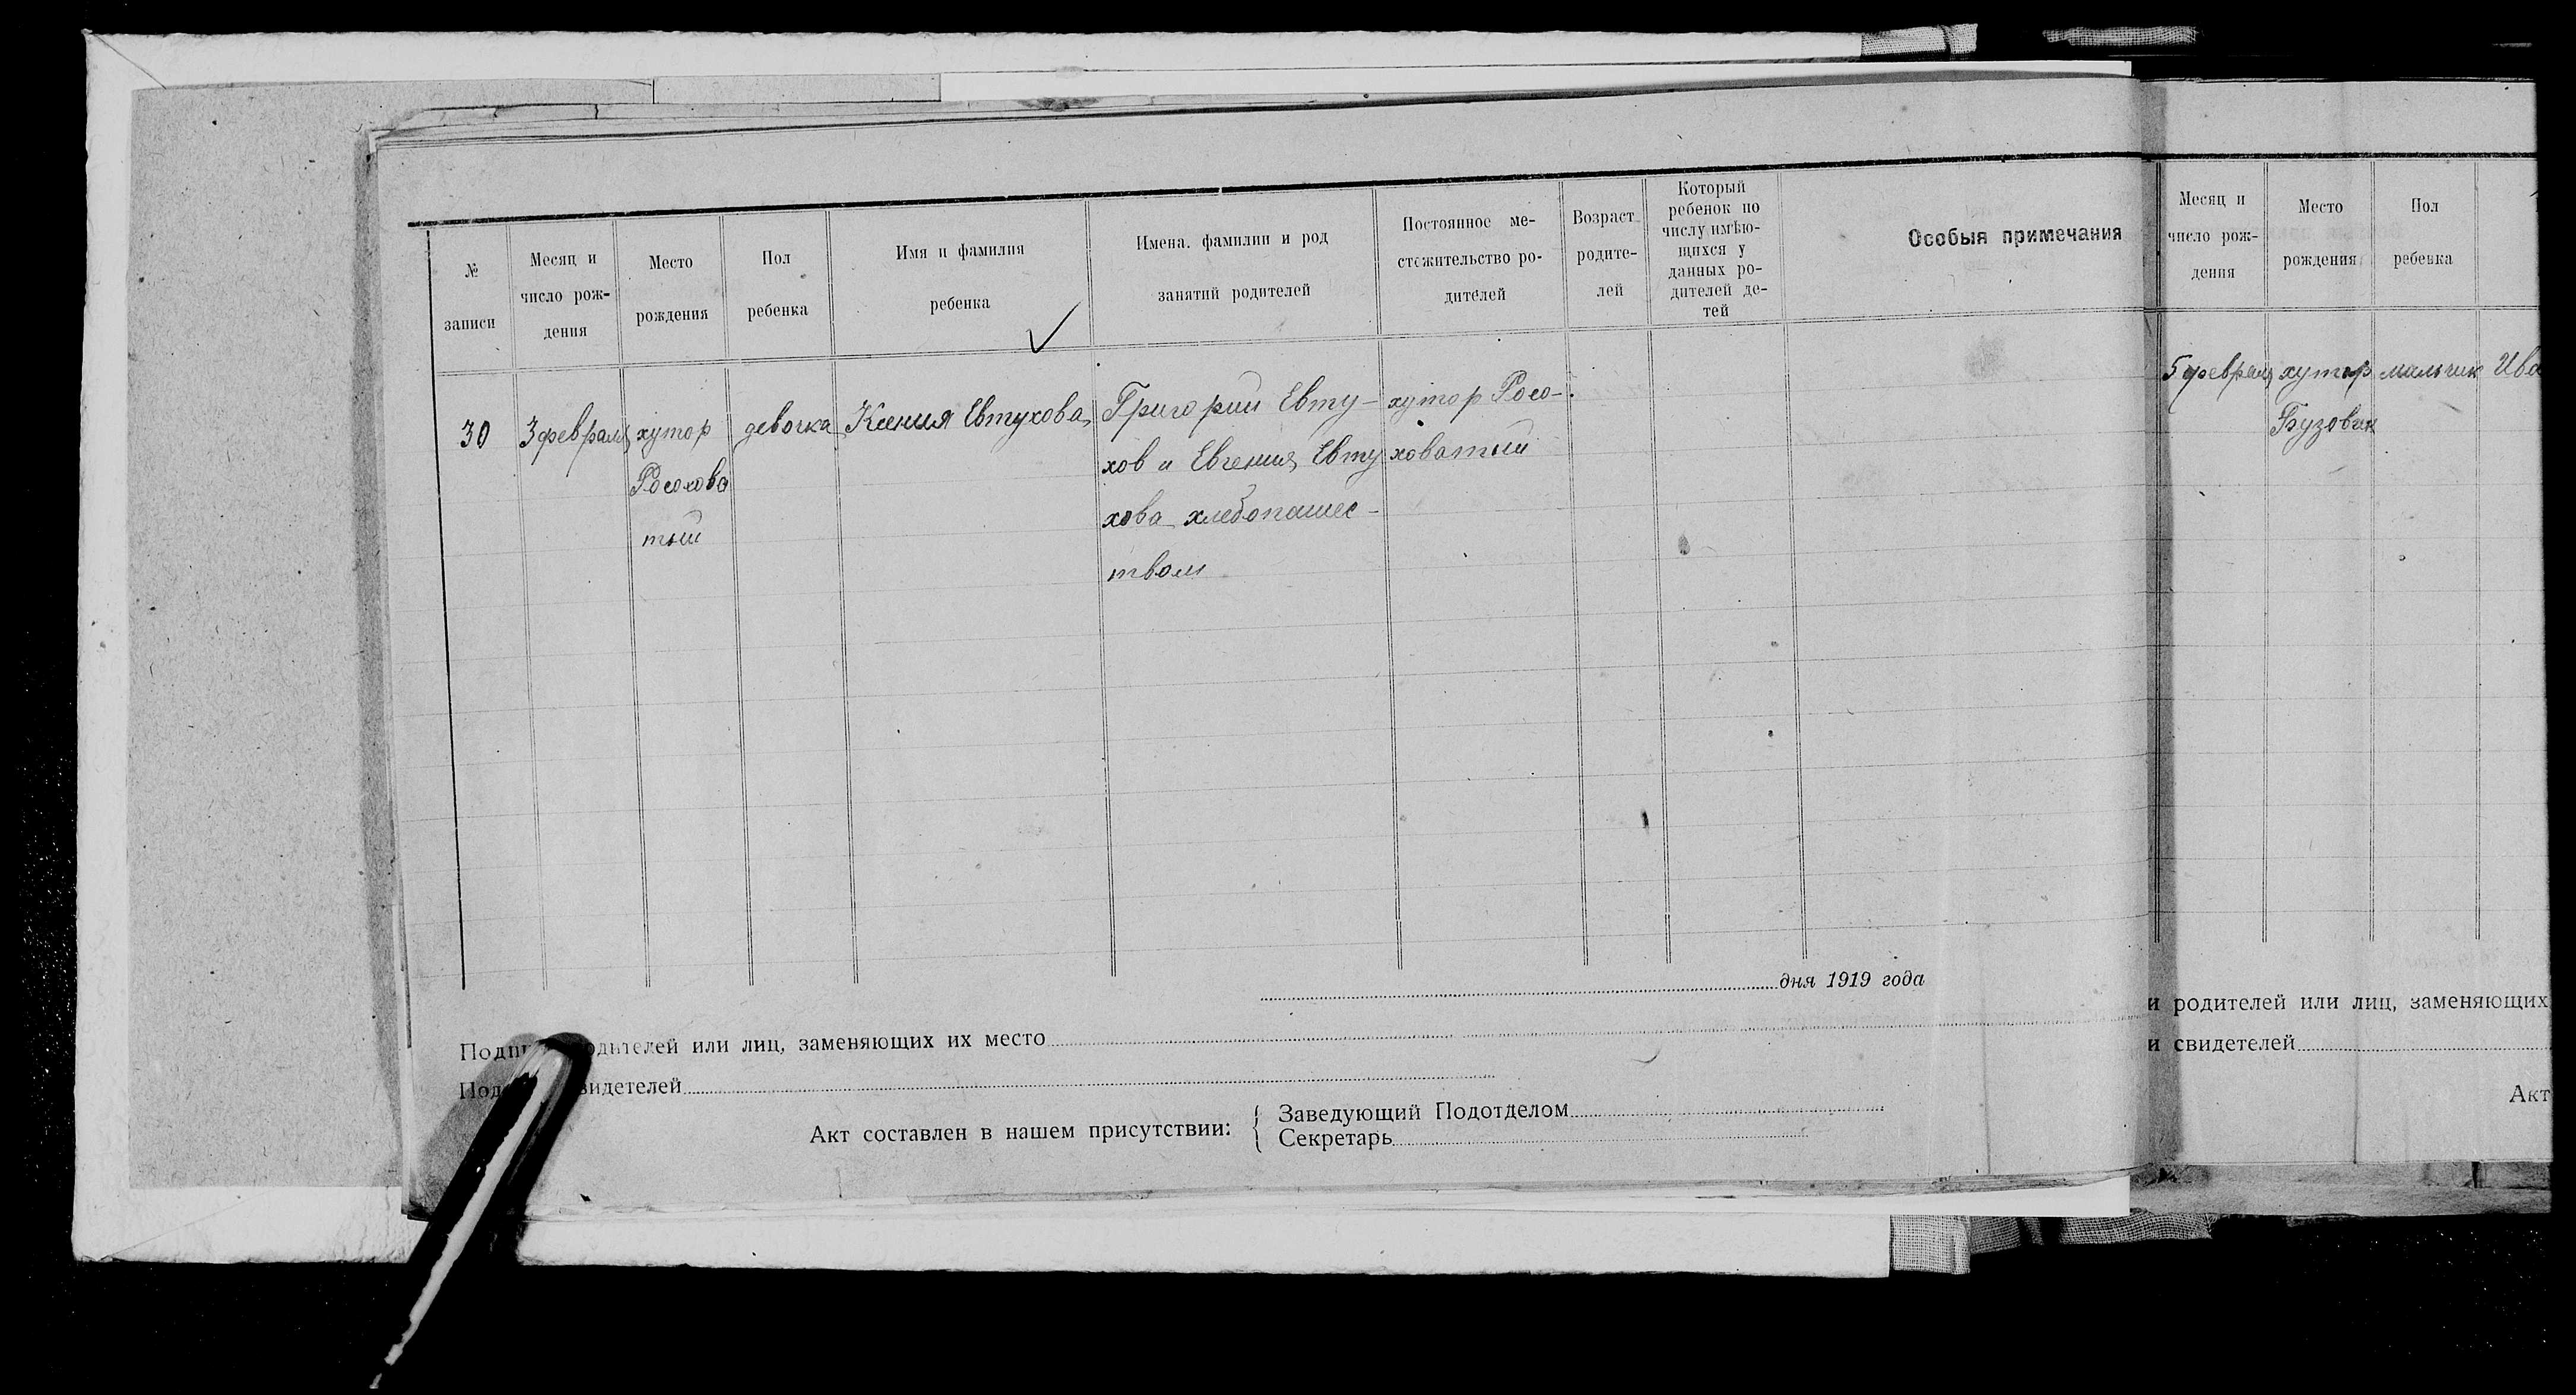 №
записи
Месяц и
число рож-
дения
Место
рождения
Пол
ребенка
Имя и фамилия
ребенка
Имена. фамилии и род
занятий родителей
Постоянное ме-
стожительство ро-
дителей
Возраст
родите-
лей
Который
ребенок по
числу имѣю-
щихся у
данных ро-
дителей де-
тей
Особыя примечания
30
3 февраля
хутор
Росохова
тый
девочка
Ксения Евтухова
Григорий Евту-
хов и Евгения Евту
хова хлебопашес-
твом
хутор Росо-
ховатый
дня 1919 года
родителей или лиц, заменяющих их место
свидетелей
Акт составлен в нашем присутствии:
Заведующий Подотделом
Секретарь
Месяц и
число рож-
дения
Место
рождения
Пол
ребенка
5 февраля
хутор
Бузовин
мальчик
Ива
и родителей или лиц, заменяющих
и свидетелей
Акт